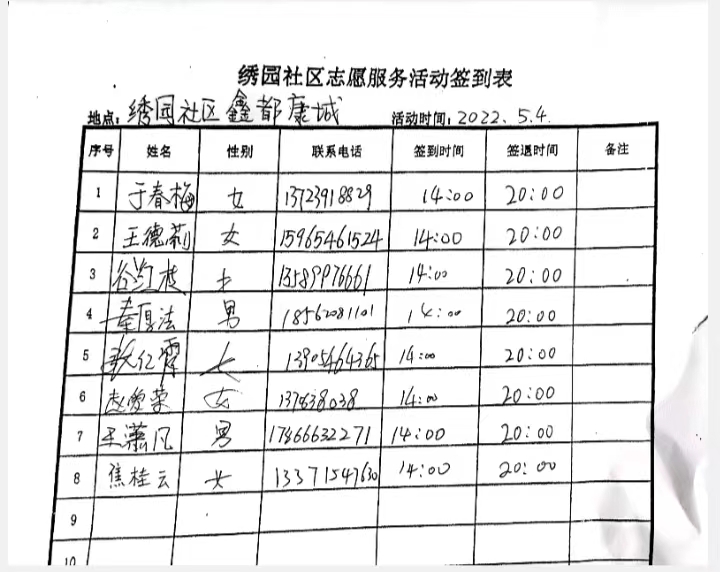 绣园社区志愿服务活动签到表
地点: 绣园社区鑫都康城 活动时间: 2022.5.4.
序号 姓名 性别 联系电话 签到时间 签退时间 备注
1 于春梅 女 13723918829 14:00 20:00
2 王德莉 女 15965461524 14:00 20:00
3 谷红枝 女 13589976661 14:00 20:00
4 秦厚法 男 18562081101 14:00 20:00
5 张仁霄 女 13905464365 14:00 20:00
6 赵爱荣 女 137638038 14:00 20:00
7 王潇凡 男 17866632271 14:00 20:00
8 焦桂云 女 13371547630 14:00 20:00
9
10